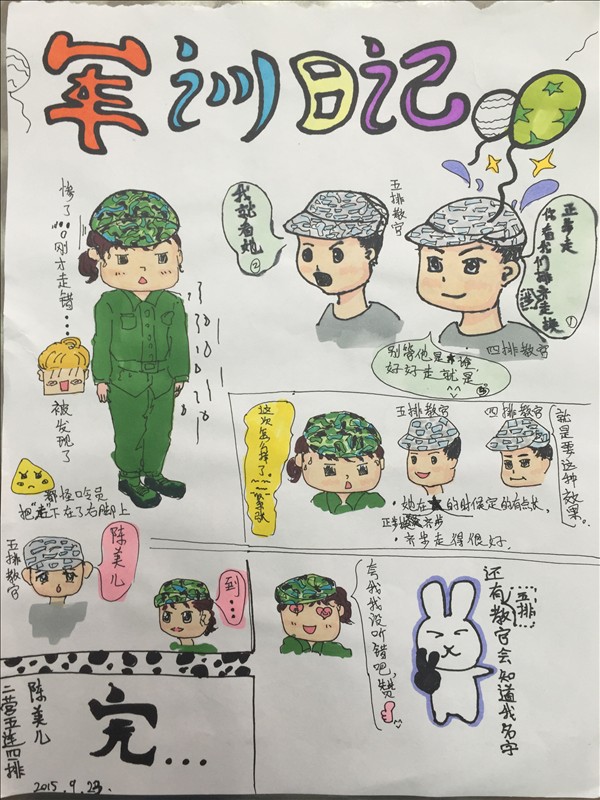 军训日记
惨了
刚才走错...
被发现了
都怪口令员
把"走"下在了右脚上
五排教官
我就看她
②
正步走
你看我们排来走挨
①
四排教官
别管他是
好好走就是
③
这次怎么办样了。
紧张
五排教官
四排教官
就是要这种效果。
·她在 的时候定的有点长，
正步 齐步
·齐步走得很好.
五排教官
陈美儿
到...
夸我我没听错吧,赞
还有五排教官会知道我名字
完...
陈美儿
二营五连四排
2015.9.23.